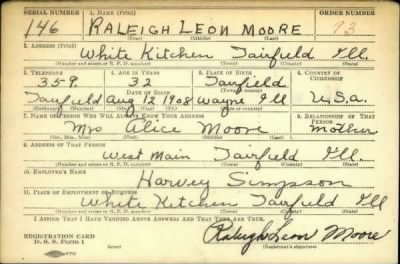 SERIAL NUMBER 1. NAME (Print) ORDER NUMBER
146 RALEIGH LEON MOORE 93
(First) (Middle) (Last)
2. ADDRESS (Print)
White Kitchen Fairfield Ill.
(Number and street or R. F. D. number) (Town) (County) (State)
3. TELEPHONE 4. AGE IN YEARS 5. PLACE OF BIRTH 6. COUNTRY OF CITIZENSHIP
359 32 Fairfield
DATE OF BIRTH
Fairfield Aug 12 1908 Wayne Ill U.S.a.
(Exchange) (Mo.) (Day) (Yr.) (State or country)
7. NAME OF PERSON WHO WILL ALWAYS KNOW YOUR ADDRESS 8. RELATIONSHIP OF THAT PERSON
Mrs Alice Moore Mother
(Mr., Mrs., Miss) (First) (Middle) (Last)
9. ADDRESS OF THAT PERSON
West Main Fairfield Ill.
(Number and street or R. F. D. number) (Town) (County) (State)
10. EMPLOYER'S NAME
Harvey Simpson
11. PLACE OF EMPLOYMENT OR BUSINESS
White Kitchen Fairfield Ill
(Number and street or R. F. D. number) (Town) (County) (State)
I AFFIRM THAT I HAVE VERIFIED ABOVE ANSWERS AND THAT THEY ARE TRUE.
REGISTRATION CARD
D. S. S. Form 1 Raleigh Leon Moore
(Registrant's signature)